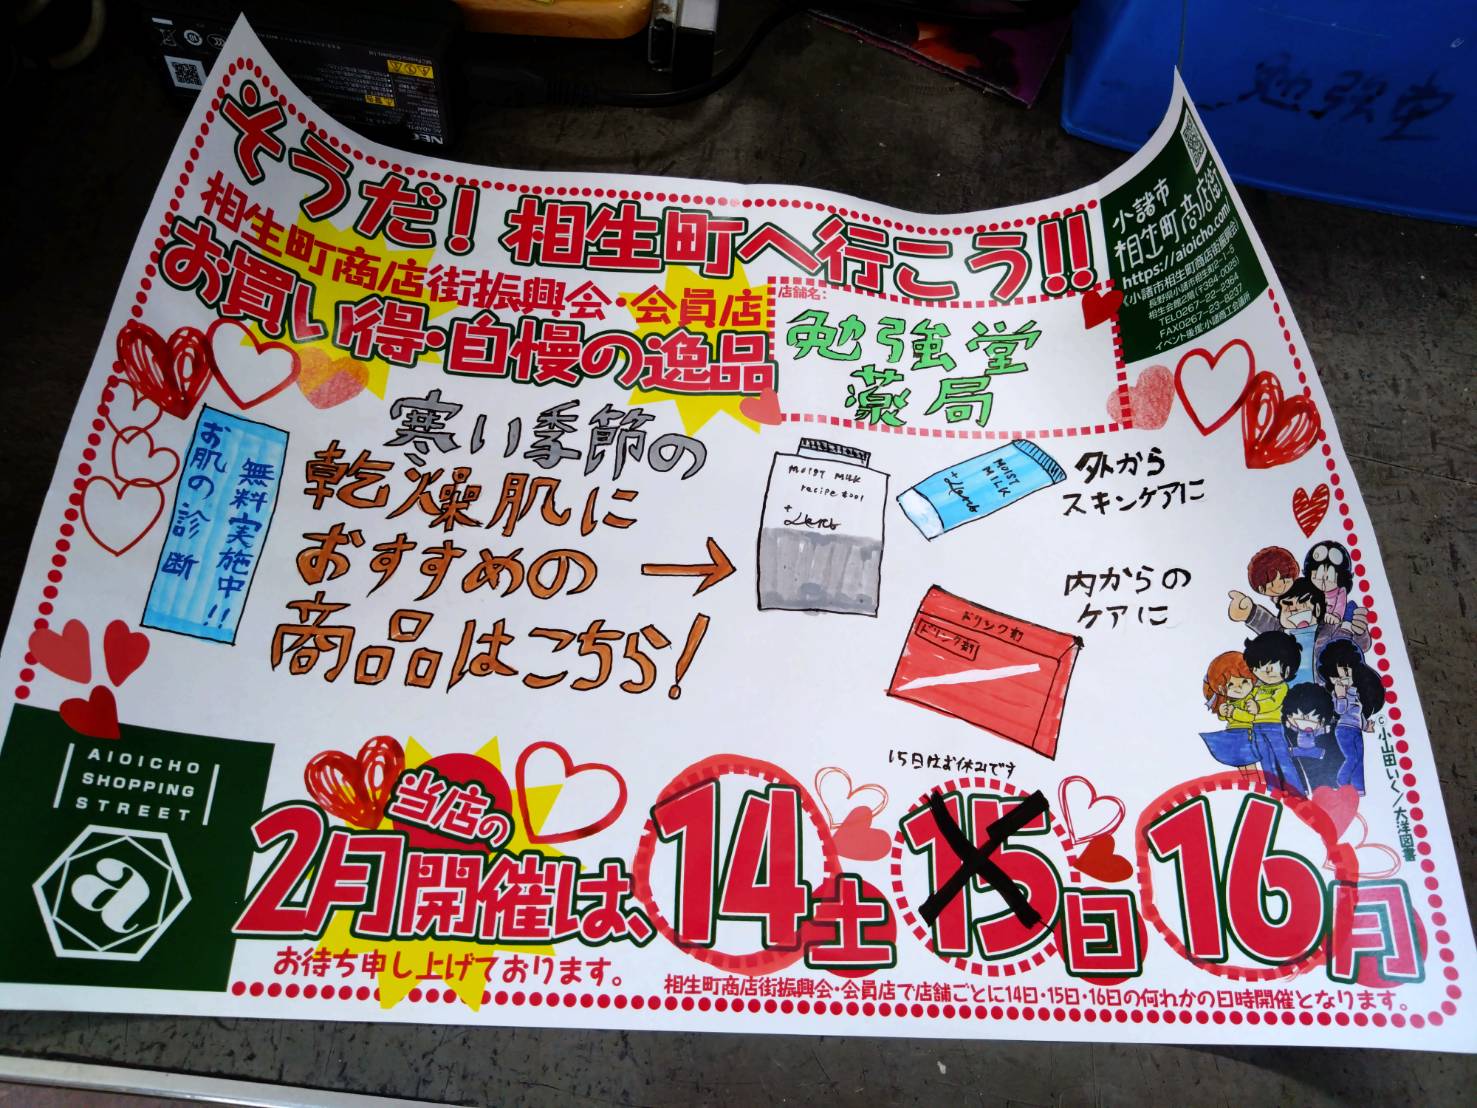 そうだ！相生町へ行こう!!
相生町商店街振興会・会員店
お買い得・自慢の逸品
店舗名：
勉強堂
薬局
小諸市
相生町商店街
https://aioicho.com/
《小諸市相生町商店街振興会》
長野県小諸市相生町2-1-5
相生会館2階(〒384-0025)
TEL0267-22-2354
FAX0267-23-8237
イベント後援：小諸商工会議所
勉強堂
NEC
お肌の診断
無料実施中!!
寒い季節の
乾燥肌に
おすすめの
商品はこちら!
→
MOIST MILK
recipe tool
MOIST
MILK
外から
スキンケアに
内からの
ケアに
ドリンク剤
ドリンク剤
©小山田いく／大洋図書
AIOICHO
SHOPPING
STREET
a
15日はお休みです
当店の
2月開催は、14土 15日 16月
お待ち申し上げております。
相生町商店街振興会・会員店で店舗ごとに14日・15日・16日の何れかの日時開催となります。